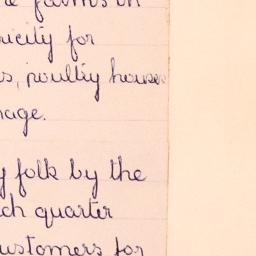 farms in
ricity for
s, poultry houses
nage.
y folk by the
ch quarter
ustomers for